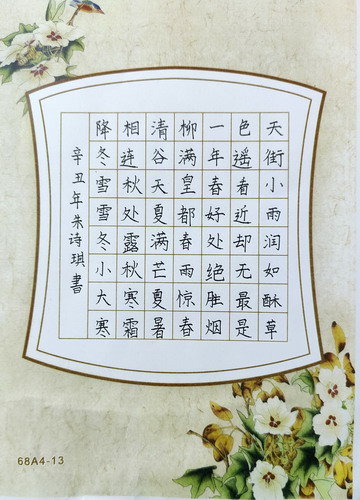 天街小雨润如酥草
色遥看近却无最是
一年春好处绝胜烟
柳满皇都春雨惊春
清谷天夏满芒夏暑
相连秋处露秋寒霜
降冬雪雪冬小大寒
辛丑年朱诗琪書
68A4-13